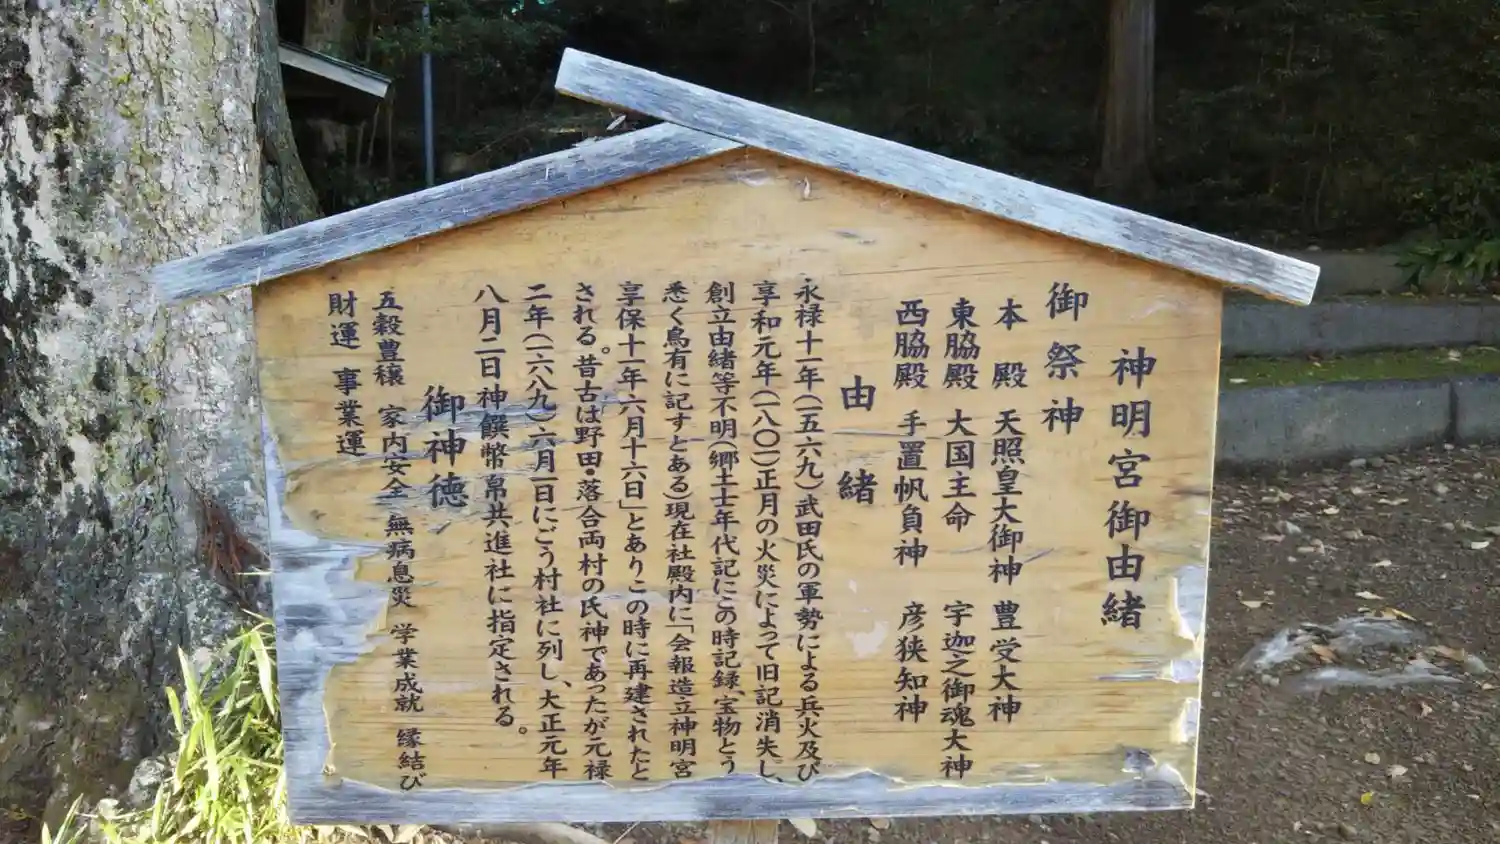 神明宮御由緒
御祭神
本殿 天照皇大御神 豊受大神
東脇殿 大国主命 宇迦之御魂大神
西脇殿 手置帆負神 彦狭知神
由緒
永禄十一年(一五六九)武田氏の軍勢による兵火及び
享和元年(一八〇一)正月の火災によって旧記消失し、
創立由緒等不明(郷土士年代記にこの時記録、宝物とう
悉く烏有に記すとある)現在社殿内に「会報造立神明宮
享保十一年六月十六日」とありこの時に再建されたと
される。昔古は野田・落合両村の氏神であったが元禄
二年(一六八九)六月一日にごう村社に列し、大正元年
八月二日神饌幣帛共進社に指定される。
御神徳
五穀豊穣 家内安全 無病息災 学業成就 縁結び
財運 事業運